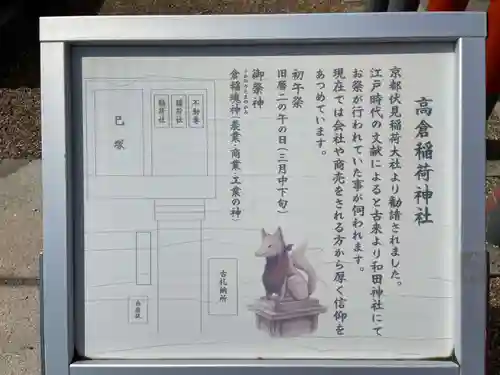 高倉稲荷神社
京都伏見稲荷大社より勧請されました。
江戸時代の文献によると古来より和田神社にて
お祭が行われていた事が伺われます。
現在では会社や商売をされる方から厚く信仰を
あつめています。
初午祭
旧暦二の午の日（三月中下旬）
御祭神
倉稲魂神（農業・商業・工業の神）
不動尊
稲荷社
巳塚
古札納所